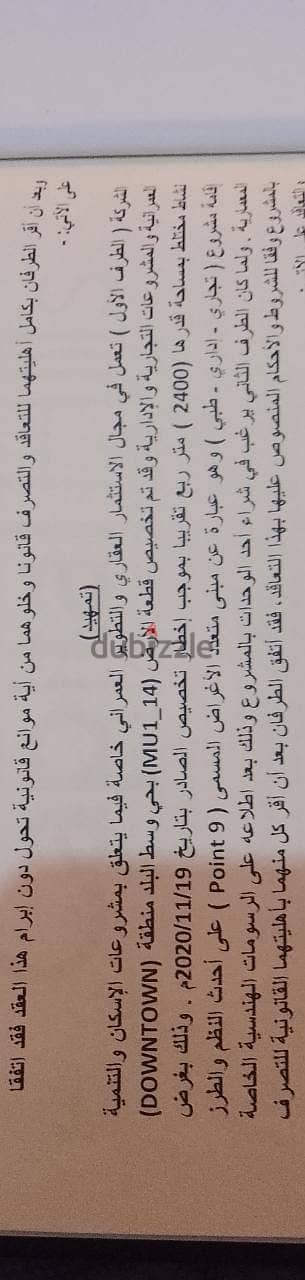 وبعد أن أقر الطرفان بكامل أهليتهما للتعاقد والتصرف قانونا وخلوهما من أية موانع قانونية تحول دون إبرام هذا العقد فقد اتفقا
على الآتي: -
(تمهيد)
الشركة ( الطرف الأول ) تعمل في مجال الاستثمار العقاري والتطوير العمراني خاصة فيما يتعلق بمشروعات الإسكان والتنمية
العمرانية والمشروعات التجارية والإدارية وقد تم تخصيص قطعة الأرض (MU1_14) بحي وسط البلد منطقة (DOWNTOWN)
نشاط مختلط بمساحة قدرها (2400 ) متر ربع تقريبا بموجب إخطار تخصيص الصادر بتاريخ 2020/11/19م . وذلك بغرض
إقامة مشروع ( تجاري - اداري - طبي ) وهو عبارة عن مبنى متعدد الأغراض المسمى ( Point 9 ) على أحدث النظم والطرز
المعمارية . ولما كان الطرف الثاني يرغب في شراء أحد الوحدات بالمشروع وذلك بعد اطلاعه على الرسومات الهندسية الخاصة
بالمشروع وفقا للشروط والأحكام المنصوص عليها بهذا التعاقد، فقد اتفق الطرفان بعد أن أقر كل منهما بأهليتهما القانونية للتصرف
dubizzle